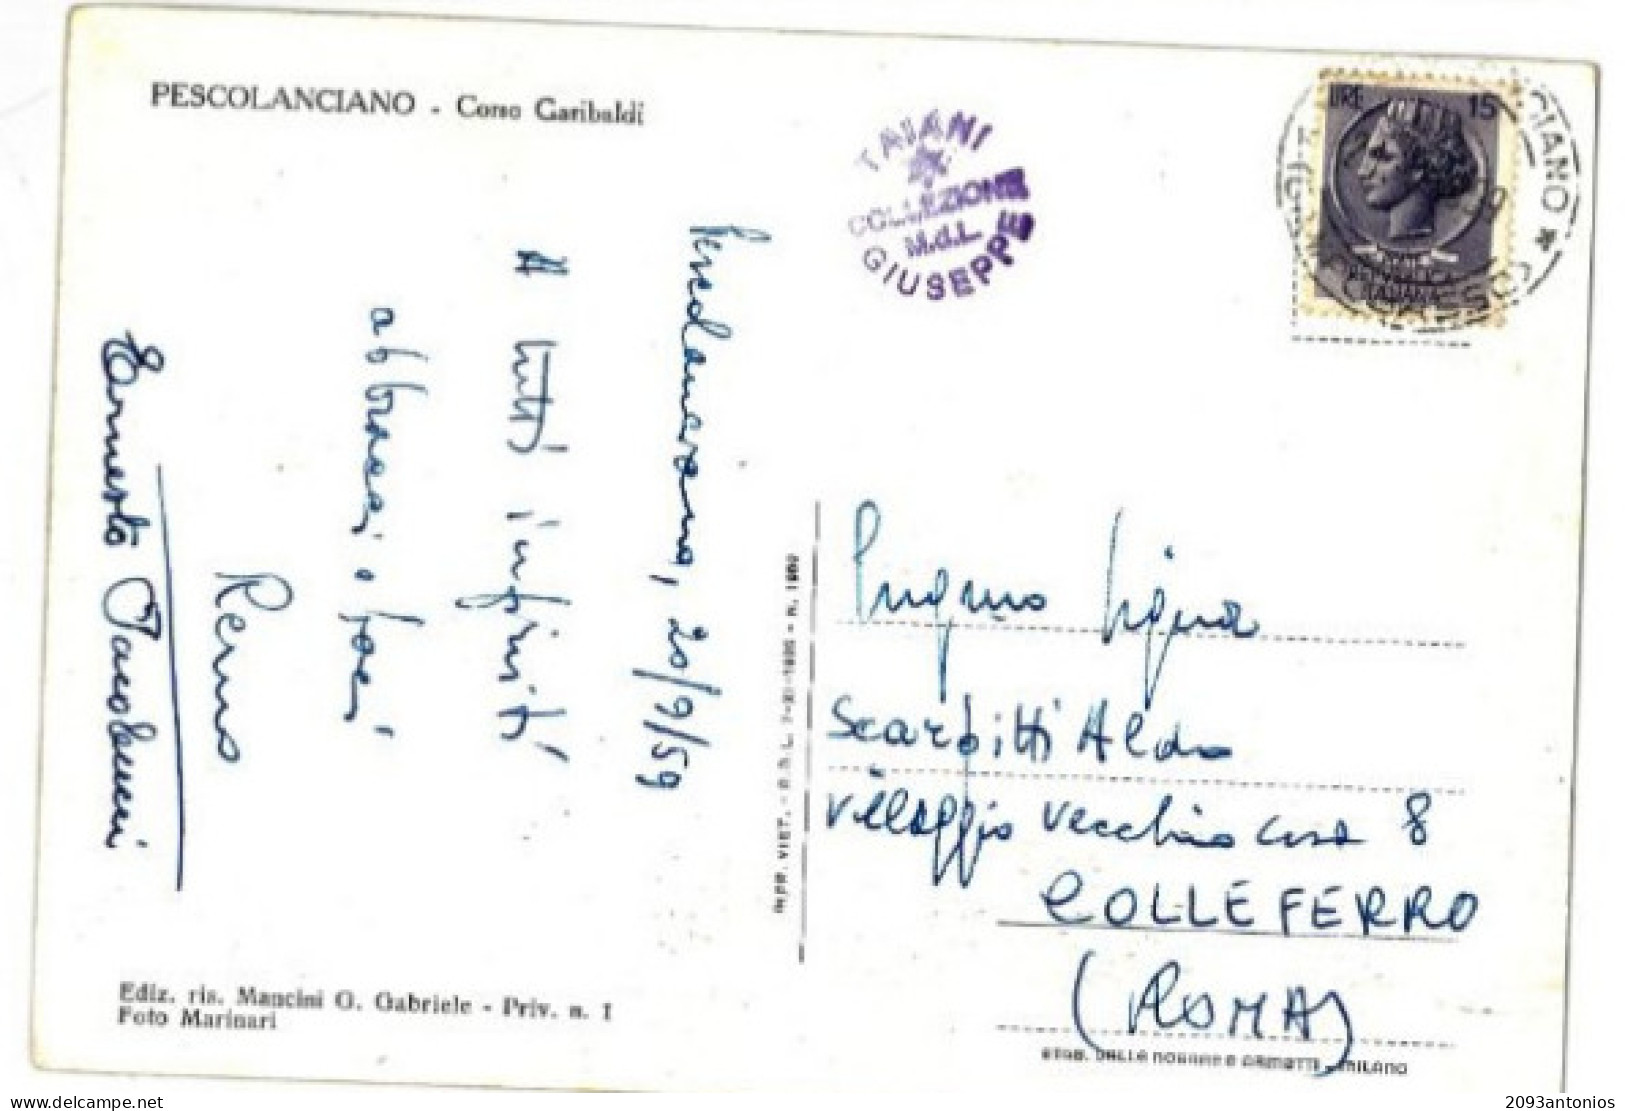 PESCOLANCIANO - Corso Garibaldi
TAIANI
COLLEZIONE
M.d.L.
GIUSEPPE
LIRE 15
REPVBBLICA
ITALIANA
Pescolanciano, 20/9/59
A tutti infiniti
abbracci e baci
Remo
Ernesto Iacobucci
Scarfitti Aldo
Villaggio Vecchio casa 8
COLLEFERRO
(ROMA)
Ediz. ris. Mancini G. Gabriele - Priv. n. 1
Foto Marinari
STAB. DALLE NOGARE E ARMETTI - MILANO
2093antonios